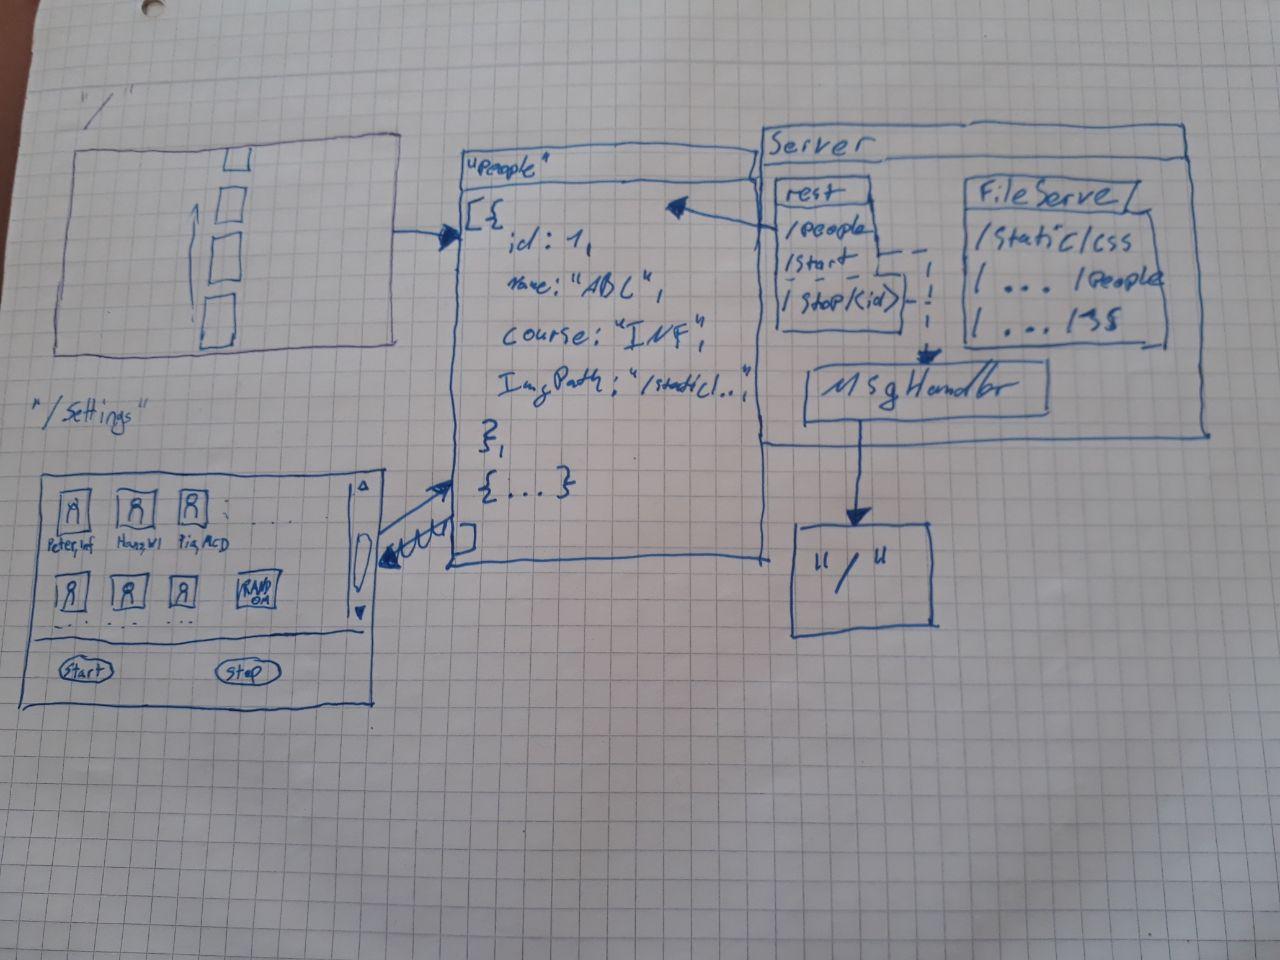 "/"
"/Settings"
Peter, Inf
Hans, WI
Pia, MCD
RAND
OM
Start
Stop
"People"
[{
id: 1,
name: "ABC",
course: "INF",
ImgPath: "/static/..."
},
{...}
]
Server
rest
/people
/start
/stop<id>
FileServer
/static/css
/ ... /people
/ ... /JS
MsgHandler
"/"